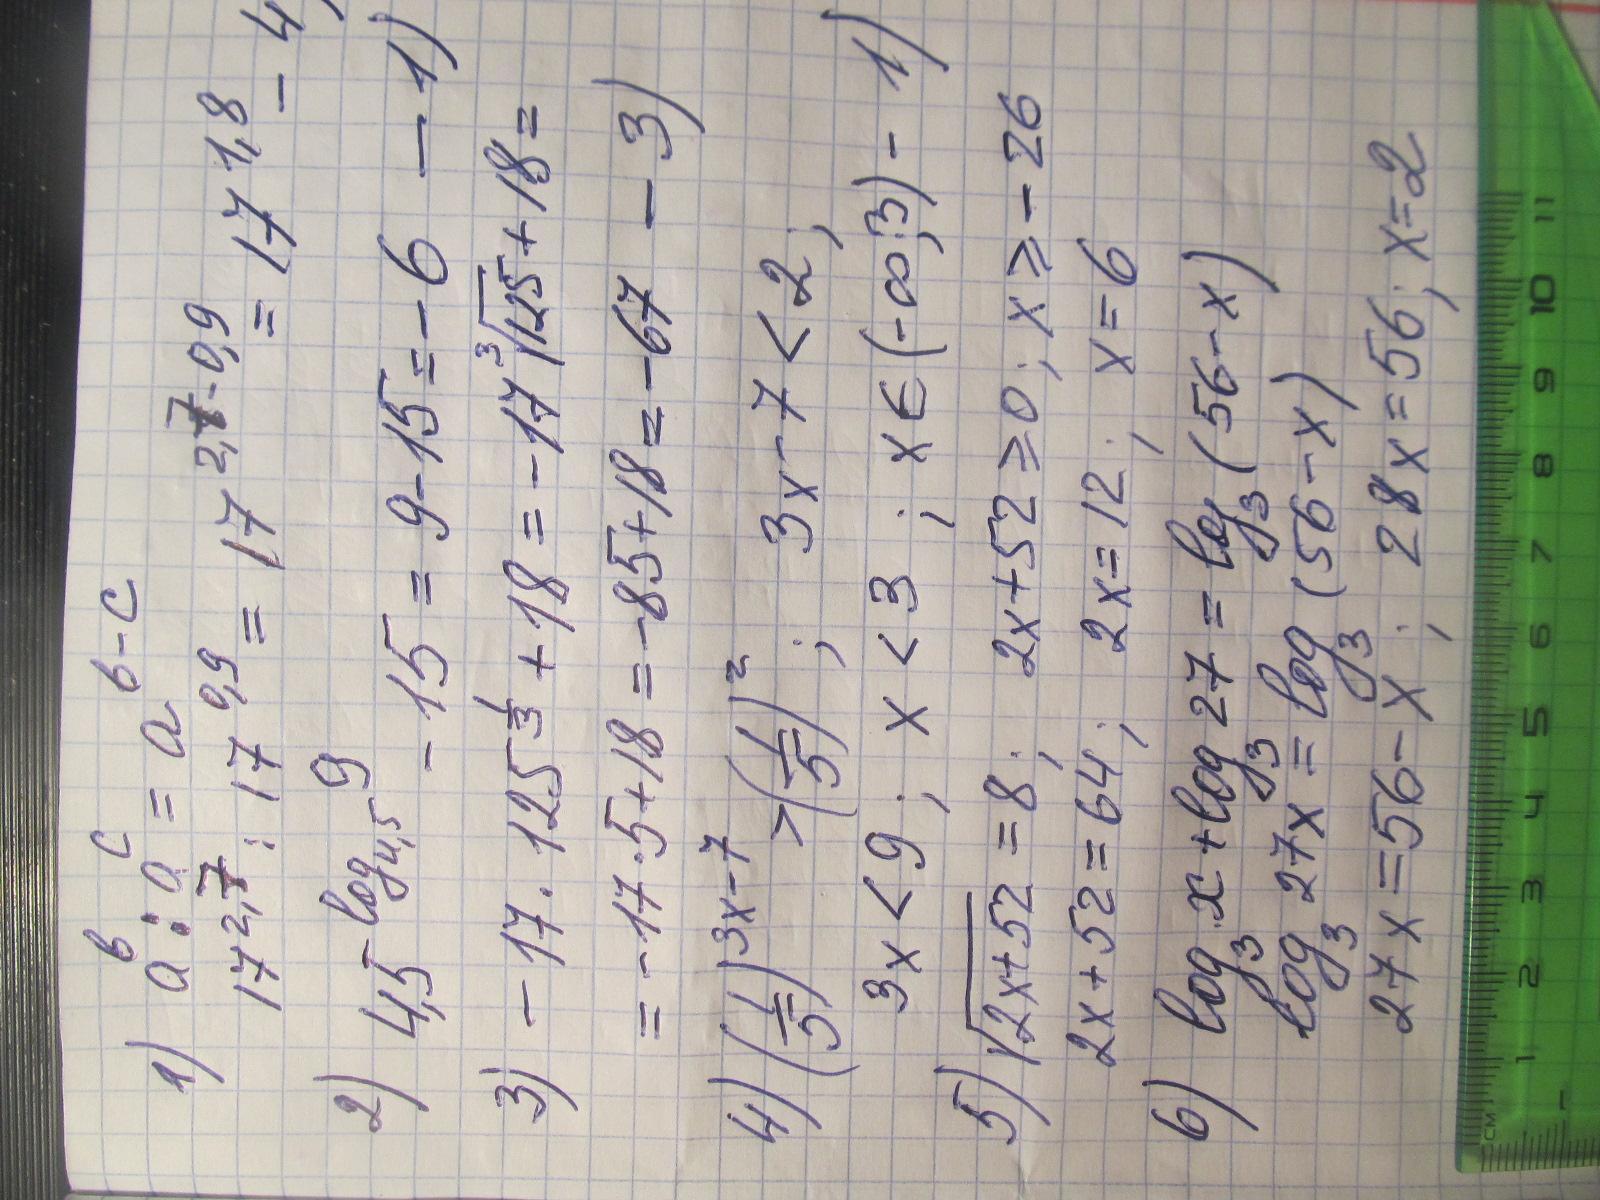 1) a^b : a^c = a^(b-c)
17^2,7 : 17^0,9 = 17^(2,7-0,9) = 17^1,8 - 4)
2) 4,5^(log_4,5 9) - 15 = 9-15 = -6 - 1)
3) -17 · 125^(1/3) + 18 = -17 ∛125 + 18 =
= -17·5+18 = -85+18 = -67 - 3)
4) (1/5)^(3x-7) > (1/5)^2 ; 3x-7 < 2 ;
3x < 9 ; x < 3 ; x ∈ (-∞;3) - 1)
5) √2x+52 = 8 ; 2x+52 ≥ 0 ; x ≥ -26
2x+52 = 64 ; 2x = 12 ; x = 6
6) log_3 x + log_3 27 = log_3 (56-x)
log_3 27x = log_3 (56-x)
27x = 56-x ; 28x = 56 ; x = 2
см 1 2 3 4 5 6 7 8 9 10 11